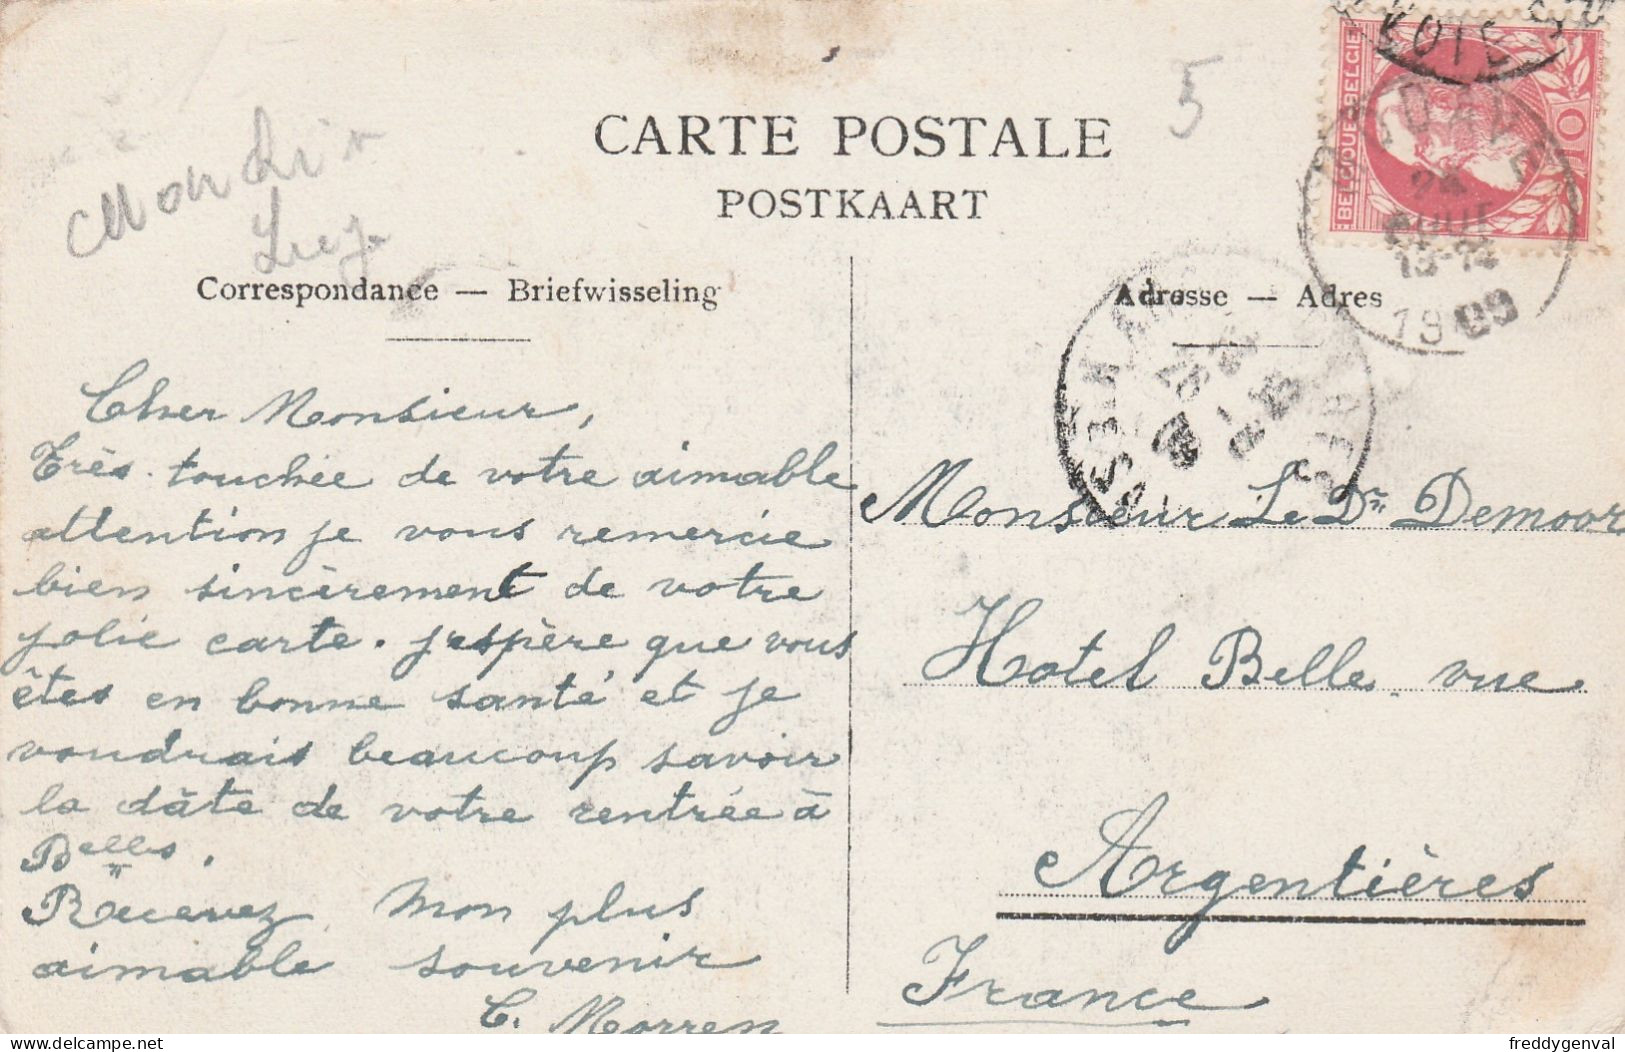 CARTE POSTALE
POSTKAART
5
Correspondance — Briefwisseling
Cher Monsieur,
Très touchée de votre aimable
attention je vous remercie
bien sincèrement de votre
jolie carte. J'espère que vous
êtes en bonne santé et je
voudrais beaucoup savoir
la dâte de votre rentrée à
Belles.
Recevez mon plus
aimable souvenir
C. Morren
BELGIQUE BELGIE
10
24
JUIL
13-14
1909
Adresse — Adres
Monsieur Le Dr Demoor
Hotel Belle-vue
Argentières
France
freddygenval